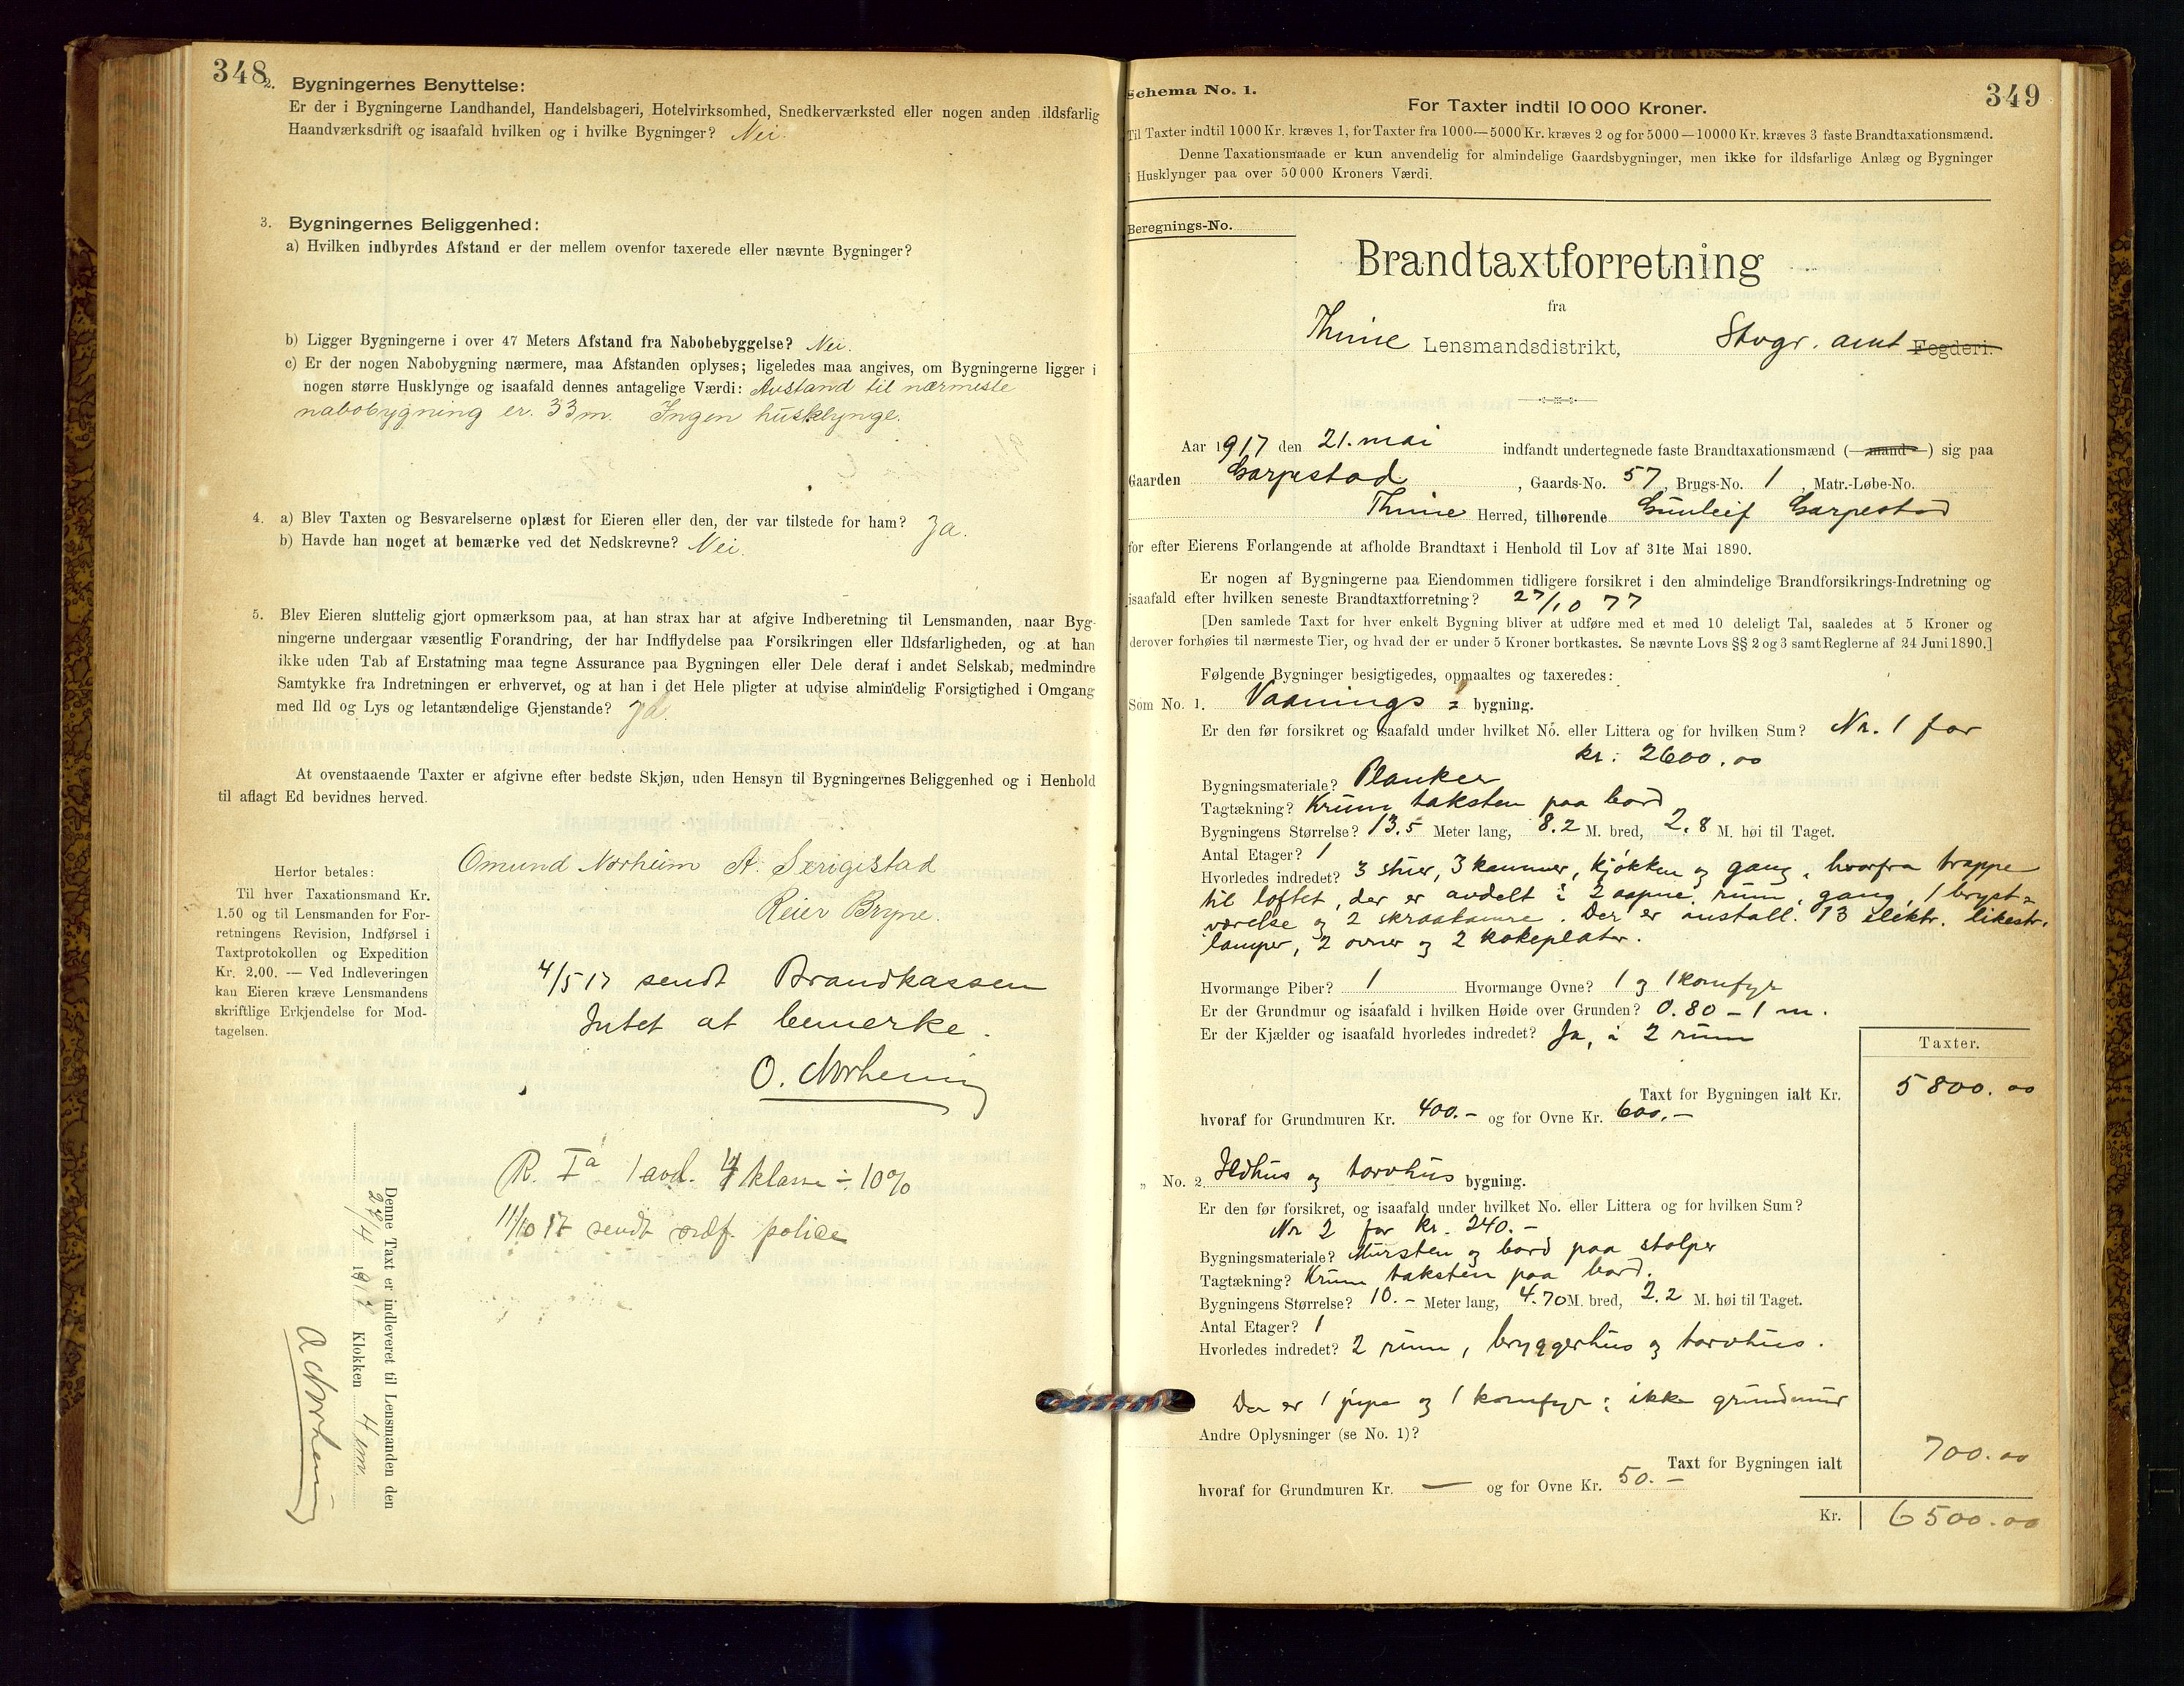 348
2. Bygningernes Benyttelse:
Er der i Bygningerne Landhandel, Handelsbageri, Hotelvirksomhed, Snedkerværksted eller nogen anden ildsfarlig
Haandværksdrift og isaafald hvilken og i hvilke Bygninger? Nei.
3. Bygningernes Beliggenhed:
a) Hvilken indbyrdes Afstand er der mellem ovenfor taxerede eller nævnte Bygninger?
b) Ligger Bygningerne i over 47 Meters Afstand fra Nabobebyggelse? Nei.
c) Er der nogen Nabobygning nærmere, maa Afstanden oplyses; ligeledes maa angives, om Bygningerne ligger i
nogen større Husklynge og isaafald dennes antagelige Værdi: Avstand til nærmeste
nabobygning er. 33 m. Ingen husklynge.
4. a) Blev Taxten og Besvarelserne oplæst for Eieren eller den, der var tilstede for ham? Ja.
b) Havde han noget at bemærke ved det Nedskrevne? Nei.
5. Blev Eieren sluttelig gjort opmærksom paa, at han strax har at afgive Indberetning til Lensmanden, naar Byg-
ningerne undergaar væsentlig Forandring, der har Indflydelse paa Forsikringen eller Ildsfarligheden, og at han
ikke uden Tab af Erstatning maa tegne Assurance paa Bygningen eller Dele deraf i andet Selskab, medmindre
Samtykke fra Indretningen er erhvervet, og at han i det Hele pligter at udvise almindelig Forsigtighed i Omgang
med Ild og Lys og letantændelige Gjenstande? Ja.
At ovenstaaende Taxter er afgivne efter bedste Skjøn, uden Hensyn til Bygningernes Beliggenhed og i Henhold
til aflagt Ed bevidnes herved.
Omund Norheim A. Serigstad
Reier Bryne.
Herfor betales:
Til hver Taxationsmand Kr.
1.50 og til Lensmanden for For-
retningens Revision, Indførsel i
Taxtprotokollen og Expedition
Kr. 2.00. — Ved Indleveringen
kan Eieren kræve Lensmandens
skriftlige Erkjendelse for Mod-
tagelsen.
4/5 17 sendt Brandkassen
Intet at bemerke.
O. Norheim
R. Ia 1 avd. 4 klasse ÷ 10%
11/10 17 sendt ordf. police
Denne Taxt er indleveret til Lensmanden den
1917 Klokken 4 em.
O. Norheim
349
Schema No. 1.
For Taxter indtil 10 000 Kroner.
Til Taxter indtil 1000 Kr. kræves 1, for Taxter fra 1000—5000 Kr. kræves 2 og for 5000—10000 Kr. kræves 3 faste Brandtaxationsmænd.
Denne Taxationsmaade er kun anvendelig for almindelige Gaardsbygninger, men ikke for ildsfarlige Anlæg og Bygninger
i Husklynger paa over 50 000 Kroners Værdi.
Beregnings-No.
Brandtaxtforretning
fra
Thime Lensmandsdistrikt, Stvgr. amt Fogderi.
Aar 1917 den 21. mai indfandt undertegnede faste Brandtaxationsmænd (mand) sig paa
Gaarden Garpestad, Gaards-No. 57, Brugs-No. 1, Matr.-Løbe-No.
Thime Herred, tilhørende Gunleif Garpestad
for efter Eierens Forlangende at afholde Brandtaxt i Henhold til Lov af 31te Mai 1890.
Er nogen af Bygningerne paa Eiendommen tidligere forsikret i den almindelige Brandforsikrings-Indretning og
isaafald efter hvilken seneste Brandtaxtforretning? 27/10 77
[Den samlede Taxt for hver enkelt Bygning bliver at udføre med et med 10 deleligt Tal, saaledes at 5 Kroner og
derover forhøies til nærmeste Tier, og hvad der er under 5 Kroner bortkastes. Se nævnte Lovs §§ 2 og 3 samt Reglerne af 24 Juni 1890.]
Følgende Bygninger besigtigedes, opmaaltes og taxeredes:
Som No. 1. Vaanings = bygning.
Er den før forsikret og isaafald under hvilket No. eller Littera og for hvilken Sum? Nr. 1 for
kr: 2600.00
Bygningsmateriale? Planker
Tagtækning? Krum taksten paa bord
Bygningens Størrelse? 13.5 Meter lang, 8.2 M. bred, 2.8 M. høi til Taget.
Antal Etager? 1
Hvorledes indredet? 3 stuer, 3 kammer, kjøkken og gang, hvorfra trappe
til loftet, der er avdelt i 2 aapne rum, gang, 1 bryst=
værelse og 2 skraakamre. Der er install. 13 elektr. likestr.
lamper, 2 ovner og 2 kokeplater.
Hvormange Piber? 1 Hvormange Ovne? 1 og 1 komfyr
Er der Grundmur og isaafald i hvilken Høide over Grunden? 0.80 – 1 m.
Er der Kjælder og isaafald hvorledes indredet? Ja, i 2 rum
Taxter.
Taxt for Bygningen ialt Kr. 5800.00
hvoraf for Grundmuren Kr. 400.– og for Ovne Kr. 600.–
„ No. 2. Ildhus og torvhus bygning.
Er den før forsikret, og isaafald under hvilket No. eller Littera og for hvilken Sum?
Nr 2 for kr. 240.–
Bygningsmateriale? Mursten og bord paa stolper
Tagtækning? Krum taksten paa bord.
Bygningens Størrelse? 10.– Meter lang, 4.70 M. bred, 2.2 M. høi til Taget.
Antal Etager? 1
Hvorledes indredet? 2 rum, bryggerhus og torvhus.
Der er 1 pipe og 1 komfyr; ikke grundmur
Andre Oplysninger (se No. 1)?
Taxt for Bygningen ialt 700.00
hvoraf for Grundmuren Kr. — og for Ovne Kr. 50.–
Kr. 6500.00